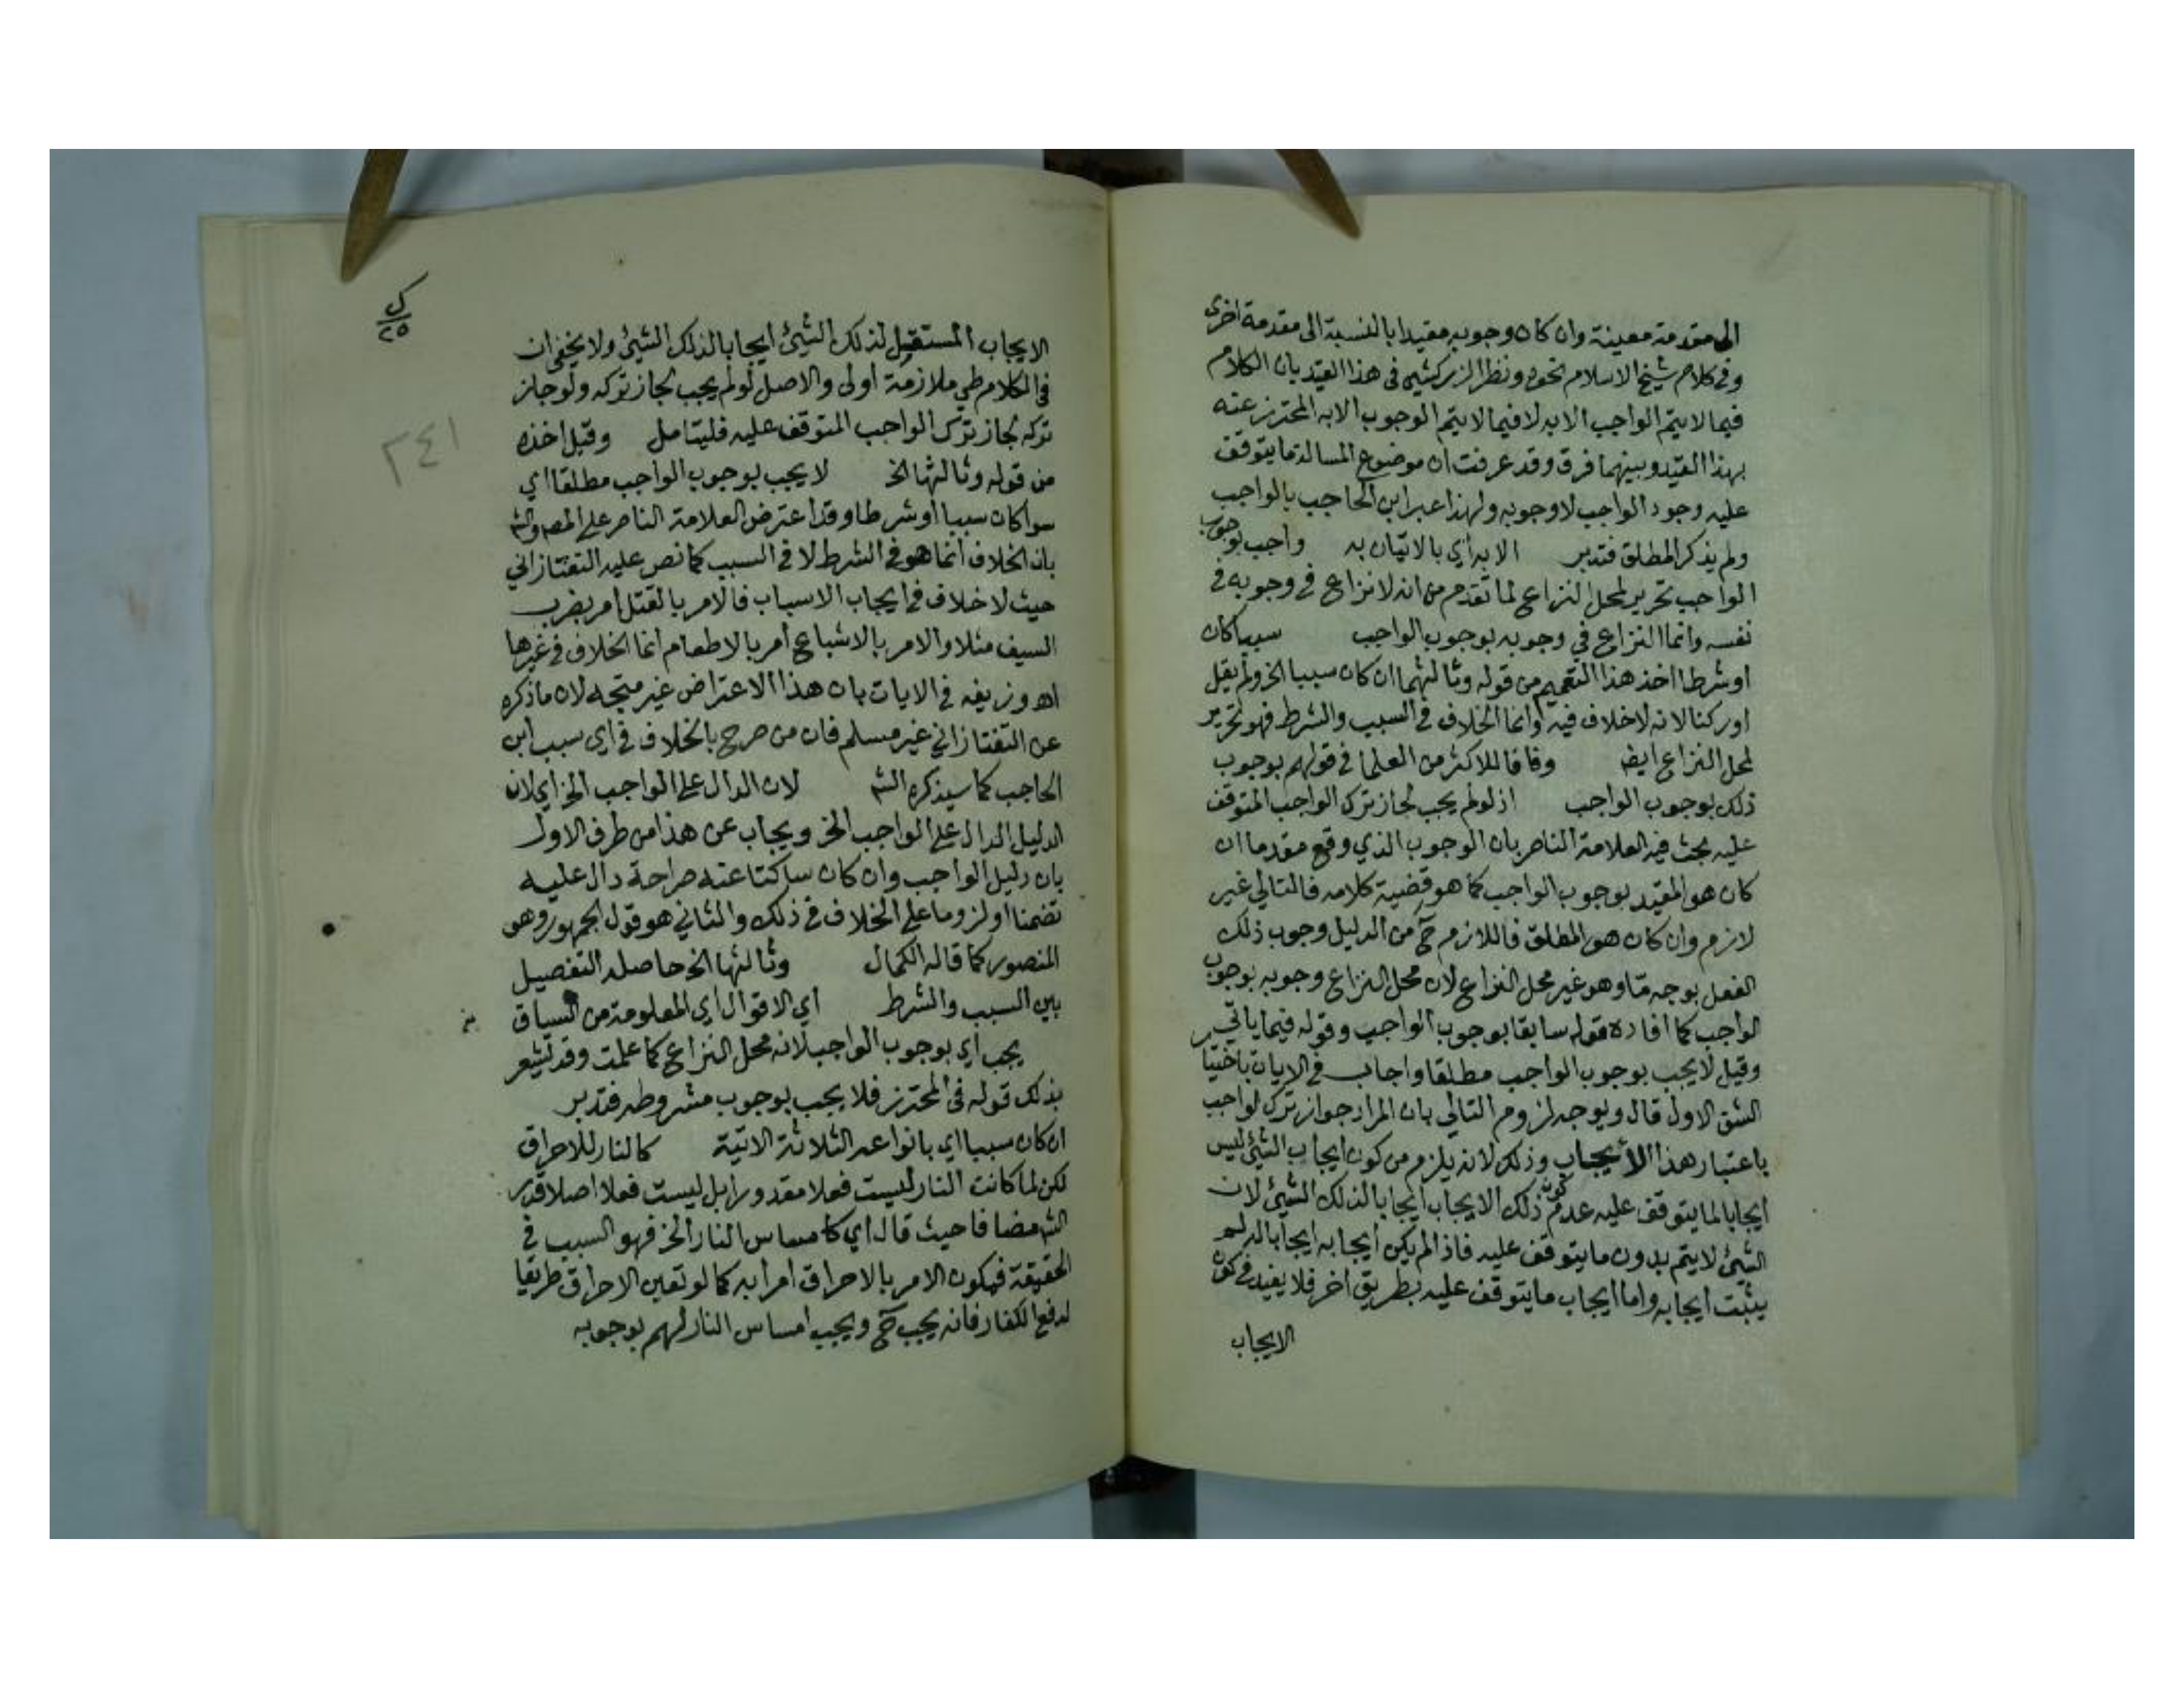 الى مقدمة معينة وان كان وجوبه مقيدا بالنسبة الى مقدمة اخرى
وفي كلام شيخ الاسلام نحوه ونظر الزركشي في هذا القيد بان الكلام
فيما لا يتم الواجب الا به لا فيما لا يتم الوجوب الا به المحترز عنه
بهذا القيد وبينهما فرق وقد عرفت ان موضوع المسالة ما يتوقف
عليه وجود الواجب لا وجوبه ولهذا عبر ابن الحاجب بالواجب
ولم يذكر المطلق فتدبر الا به اي بالاتيان به واجب بوجوب
الواجب تحرير لمحل النزاع لما تقدم من انه لا نزاع في وجوبه في
نفسه وانما النزاع في وجوبه بوجوب الواجب سببا كان
او شرطا اخذ هذا التعميم من قوله وثالثهما ان كان سببا الخ ولم يقل
او ركنا لانه لا خلاف فيه وانما الخلاف في السبب والشرط فهو تحرير
لمحل النزاع ايضا وفاقا للاكثر من العلما في قولهم بوجوب
ذلك بوجوب الواجب اذ لو لم يجب لجاز ترك الواجب المتوقف
عليه بحث فيه العلامة الناصر بان الوجوب الذي وقع مقدما ان
كان هو المقيد بوجوب الواجب كما هو قضية كلامه فالتالي غير
لازم وان كان هو المطلق فاللازم ح من الدليل وجوب ذلك
الفعل بوجه ما وهو غير محل النزاع لان محل النزاع وجوبه بوجوب
الواجب كما افاده قوله سابقا بوجوب الواجب وقوله فيما ياتي
وقيل لا يجب بوجوب الواجب مطلقا واجاب في الايات باختيا
الشق الاول قال ويوجه لزوم التالي بان المراد جواز ترك لواجب
باعتبار هذا الايجاب وذلك لانه يلزم من كون ايجاب الشيئ ليس
ايجابا لما يتوقف عليه عدم كون ذلك الايجاب ايجابا لذلك الشيئ لان
الشيئ لا يتم بدون ما يتوقف عليه فاذا لم يكن ايجابه ايجابا له لم
يثبت ايجابه واما ايجاب ما يتوقف عليه بطريق اخر فلا يفيد في كون
الايجاب
ك
٢٥
٢٤١
الايجاب المستقيل لذلك الشيئ ايجابا لذلك الشيئ ولا يخفى ان
في الكلام طي ملازمة اولى والاصل لو لم يجب لجاز تركه ولو جاز
تركه لجاز ترك الواجب المتوقف عليه فليتامل وقيل اخذه
من قوله وثالثها الخ لا يجب بوجوب الواجب مطلقا اي
سوا كان سببا او شرطا وقد اعترض العلامة الناصر على المص والش
بان الخلاف انما هو في الشرط لا في السبب كما نص عليه التفتازاني
حيث لا خلاف في ايجاب الاسباب فالامر بالقتل امر بضرب
السيف مثلا والامر بالاشباع امر بالاطعام انما الخلاف في غيرها
اه وزيفه في الايات بان هذا الاعتراض غير متجه لان ما ذكره
عن التفتازاني غير مسلم فان من صرح بالخلاف في اي سبب ابن
الحاجب كما سيذكره الش لان الدال على الواجب الخ اي لان
الدليل الدال على الواجب الخ ويجاب عن هذا من طرف الاول
بان دليل الواجب وان كان ساكتا عنه صراحة دال عليه
تضمنا او لزوما على الخلاف في ذلك والثاني هو قول الجمهور وهو
المنصور كما قاله الكمال وثالثها الخ حاصله التفصيل
بين السبب والشرط اي الاقوال اي المعلومة من السياق
يجب اي بوجوب الواجب لانه محل النزاع كما علمت وقد يشعر
بذلك قوله في المحترز فلا يجب بوجوب مشروطه فتدبر
ان كان سببا اي بانواعه الثلاثة الاتية كالنار للاحراق
لكن لما كانت النار ليست فعلا مقدورا بل ليست فعلا اصلا قدر
الش مضافا حيث قال اي كامساس النار الخ فهو السبب في
الحقيقة فيكون الامر بالاحراق امرا به كما لو تعين الاحراق طريقا
لدفع الكفار فانه يجب ح ويجب امساس النار لهم بوجوبه